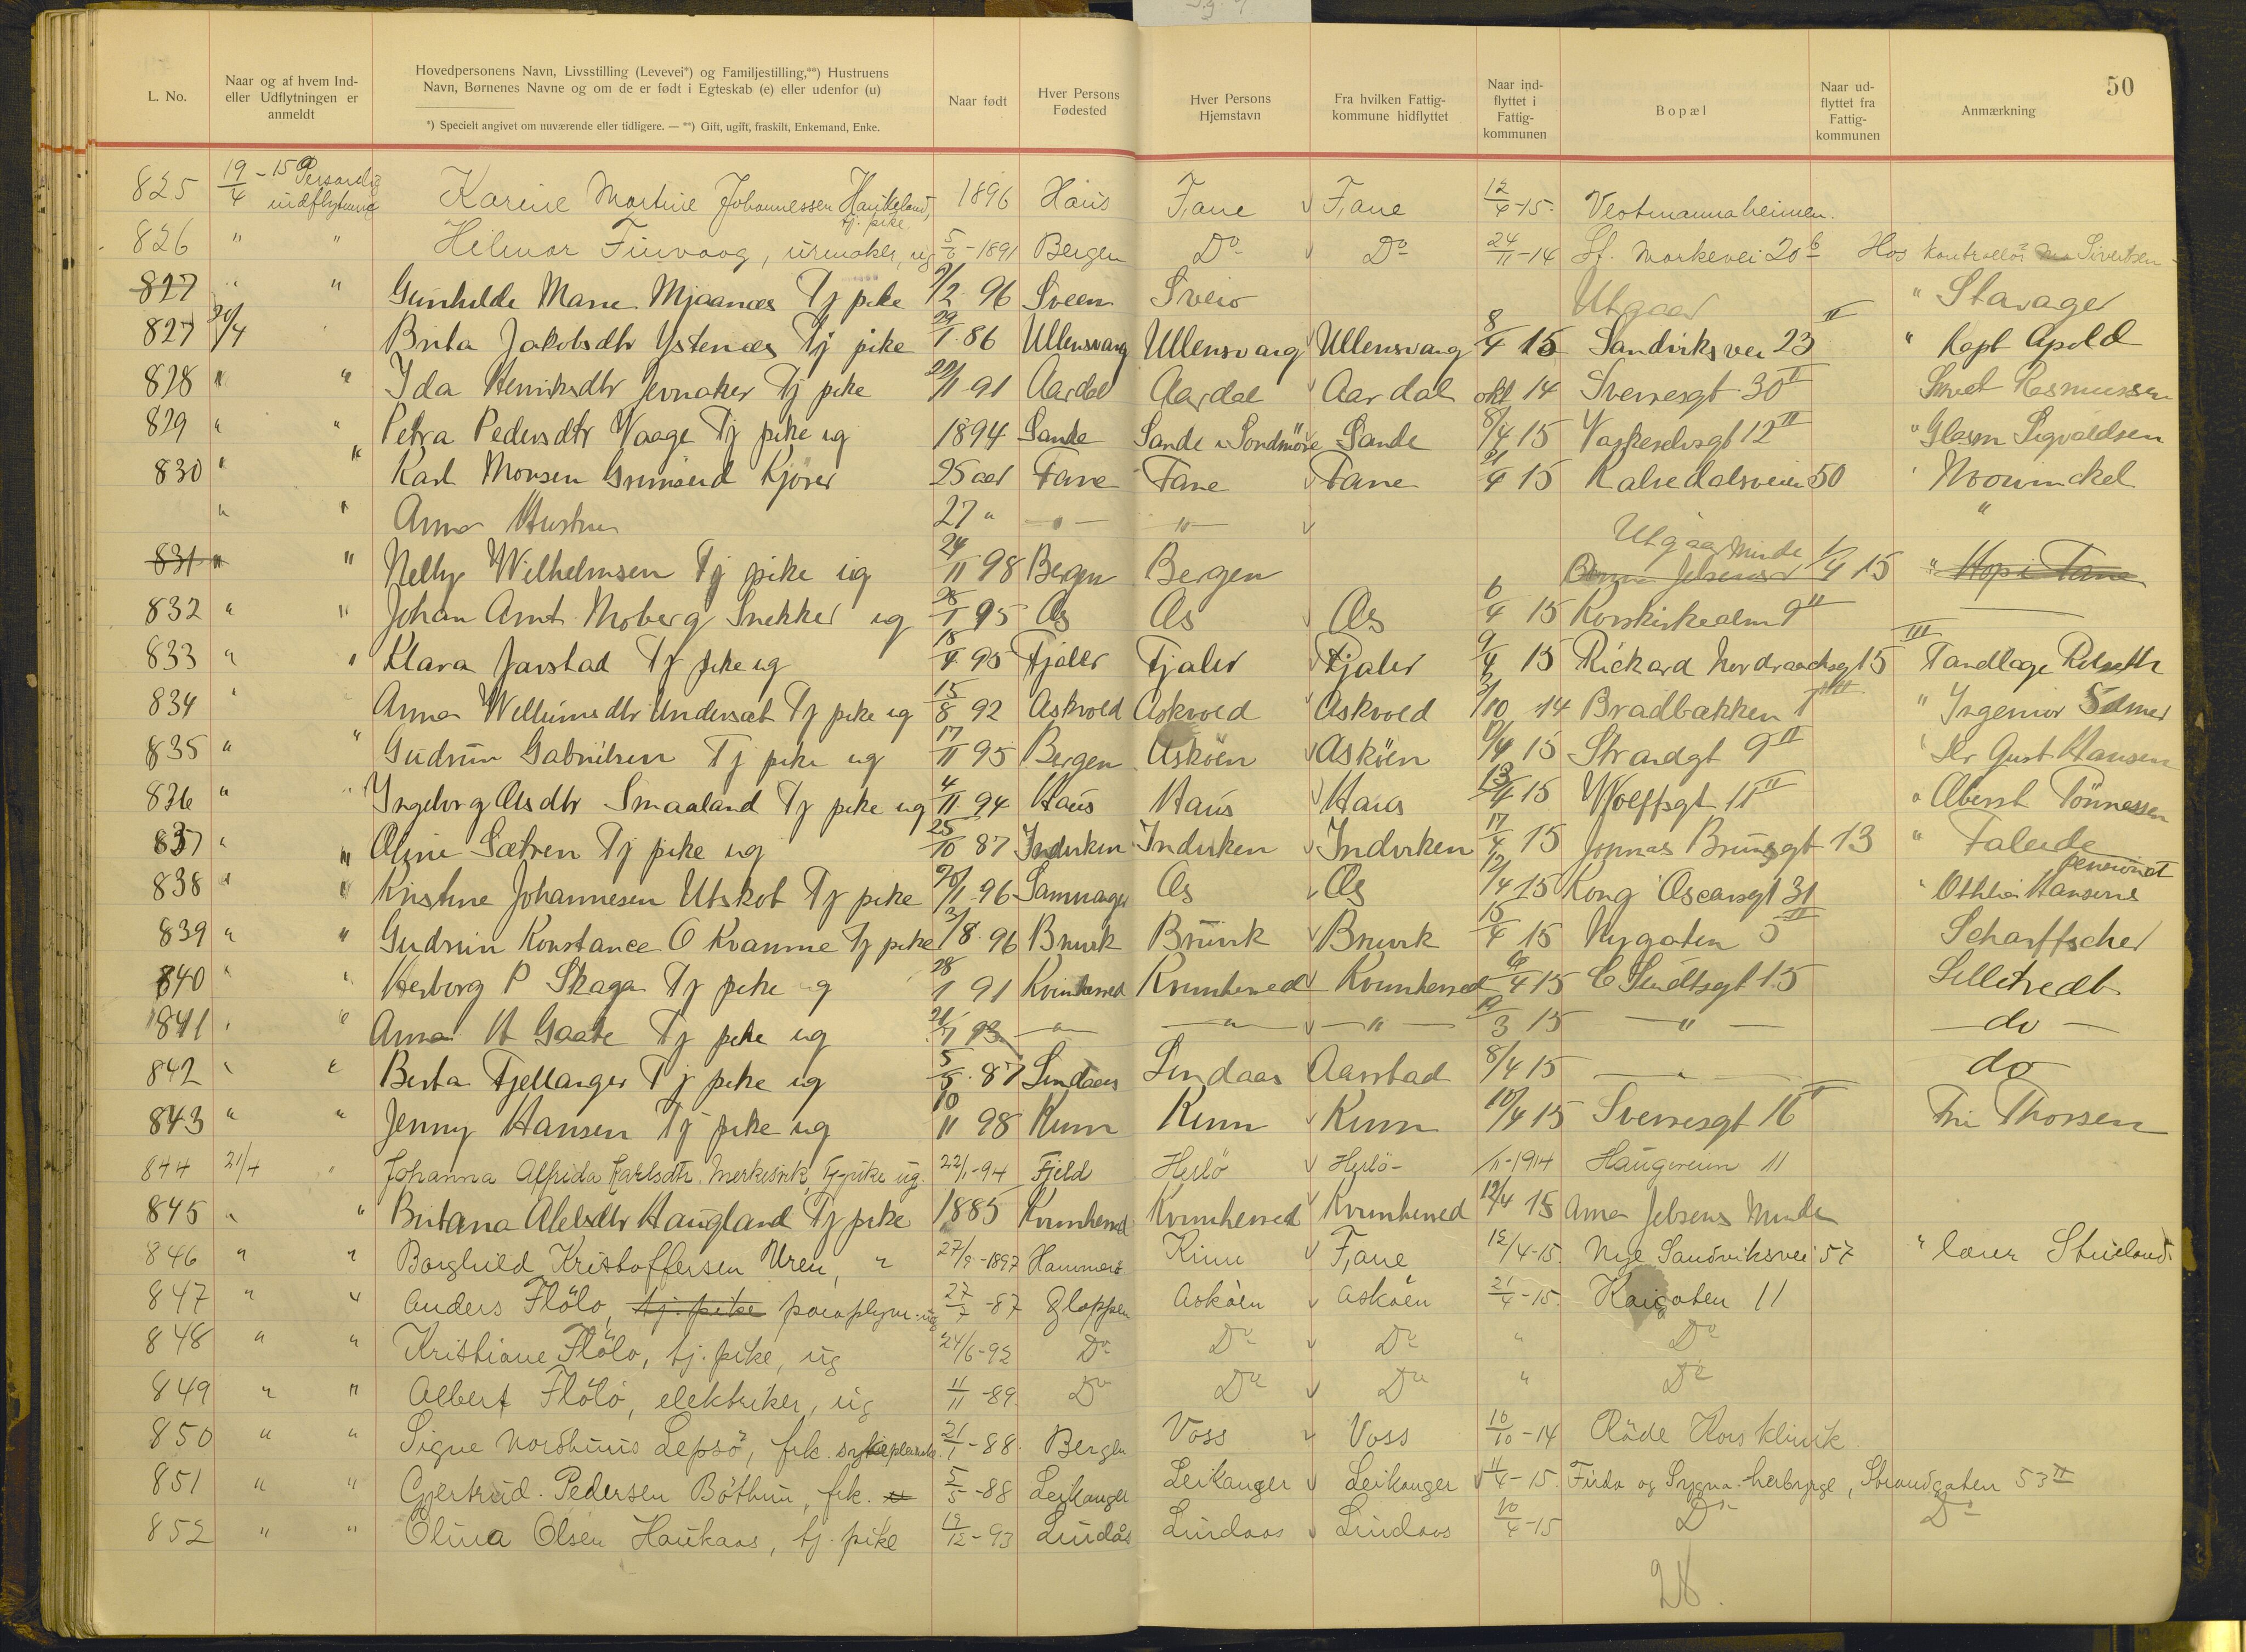 50
L. No.
Naar og af hvem Ind- eller Udflytningen er anmeldt
Hovedpersonens Navn, Livsstilling (Levevei*) og Familjestilling,**) Hustruens Navn, Børnenes Navne og om de er født i Egteskab (e) eller udenfor (u)
*) Specielt angivet om nuværende eller tidligere. — **) Gift, ugift, fraskilt, Enkemand, Enke.
Naar født
Hver Persons Fødested
Hver Persons Hjemstavn
Fra hvilken Fattig- kommune hidflyttet
Naar ind- flyttet i Fattig- kommunen
Bopæl
Naar ud- flyttet fra Fattig- kommunen
Anmærkning
825 19/4 - 15 Personlig indflytning Karine Martine Johannessen Haukeland, tj. pike 1896 Haus Fane Fane 12/4-15. Vestmannaheimen.
826 " " Hilmar Finvaag, urmaker, ug 1891 Bergen Do Do 24/11-14 St. Markevei 20 b Hos kontrollör Sivertsen
827 " " Gunhilde Marie Mjaanæs Tj pike 96 Sveen Sveio Utgaar " Stavager
827 20/4 Brita Jakobsdtr Ystenæs Tj pike 29/1 86 Ullensvang Ullensvang Ullensvang 8/4 15 Sandviksvei 23 II " Kapt Apold
828 " " Ida Henriksdtr Jevnaker Tj pike 91 Aardal Aardal Aardal okt 14 Sverresgt 30 II Rasmussen
829 " " Petra Pedersdtr Vaage Tj pike ug 1894 Sande Sande i Sondmöre Sande 8/4 15 Vaskerelvsgt 12 II " Glasm Sigvaldsen
830 " " Karl Monsen Grimseid Kjörer 25 aar Fane Fane Fane 21/4 15 Kalvedalsveien 50 Mowinckel
" " Anna Hustru 27 " — " — " — "
831 " " Nelly Wilhelmsen Tj pike ug 24/11 98 Bergen Bergen Utgaar Minde 1/4 15 " Hop i Fane
832 " " Johan Arnt Moberg Snekker ug 28/1 95 Os Os Os 6/4 15 Korskirkealm 9 II —
833 " " Klara Jarstad Tj pike ug 18/4 95 Fjaler Fjaler Fjaler 9/4 15 Rickard Nordraachsgt 5 III Tandlæge
834 " Anna Willumsdtr Undersæt Tj pike ug 15/8 92 Askvold Askvold Askvold 3/10 14 Bradbækken 1 " Ingeniør
835 " " Gudrun Gabrielsen Tj pike ug 17/11 95 Bergen Asköen Asköen 15 Strandgt 9 II Hr Gust Hansen
836 " " Ingeborg Olsdtr Smaaland Tj pike ug 4/11 94 Haus Haus Haus 13/4 15 Wolffsgt 11 II " Oberst Tönnessen
837 " " Oline Sætren Tj pike ug 25/10 87 Indviken Indviken Indviken 17/4 15 Jonnas Brunsgt 13 " Faleide
838 " " Kristine Johannesen Utskot Tj pike 96 Samnanger Os Os 12/4 15 Kong Oscarsgt 31 " Othlia Hansens pensionat
839 " " Gudrun Konstance O Kvamme Tj pike 3/8 96 Bruvik Bruvik Bruvik 15/4 15 Nygaten 5 II Scharffscher
840 " " Herborg P Skaga Tj pike ug 28/1 91 Kvinherred Kvinherred Kvinherred 15 C Sundtsgt 15 Lilletvedt
841 " " Anna H Gaate Tj pike ug 93 — " — — " — — " — 3 15 — " — — do —
842 " " Berta Fjellanger Tj pike ug 5/5 87 Lindaas Lindaas Aarstad 8/4 15 — " — do
843 " " Jenny Hansen Tj pike ug 10/11 98 Kinn Kinn Kinn 10/4 15 Sverresgt 16 Frü Thorsen
844 21/4 " Johanna Alfrida Karlsdtr. Merkesvik Tj pike ug. 22/1-94 Fjeld Herlö Herlö - 1/11-1914 Haugveien 11
845 " " Britana Olelsdtr Haugland Tj pike 1885 Kvinherred Kvinherred Kvinherred 12/4 15 Anna Jebsens Minde
846 " " Borghild Kristoffersen Uren, " 27/9-1897 Hammer Kinn Fane 12/4-15. Nye Sandviksvei 57 " lærer
847 " " Anders Flölo, tj. pike ug 27/7 -87 Gloppen Asköen Asköen 21/4-15. Kaigaten 11
848 " " Kristiane Flölo, tj. pike, ug 24/6-92 Do Do Do " Do
849 " " Albert Flölo, elektriker, ug 11/11 -89. Do Do Do " Do
850 " " Signe Nordhuus Lepsö, frk. 21/1 -88. Bergen Voss Voss 10/10 -14 Röde Kors klinik
851 " " Gjertrud Pedersen Böthun, frk. 5/5 -88 Leikanger Leikanger Leikanger 11/4-15. Firda og Sygna-herbyrge, Strandgaten 53 II
852 " " Olina Olsen Haukaas, tj. pike 19/12-93 Lindås Lindaas Lindaas 10/4-15 Do Do
28.